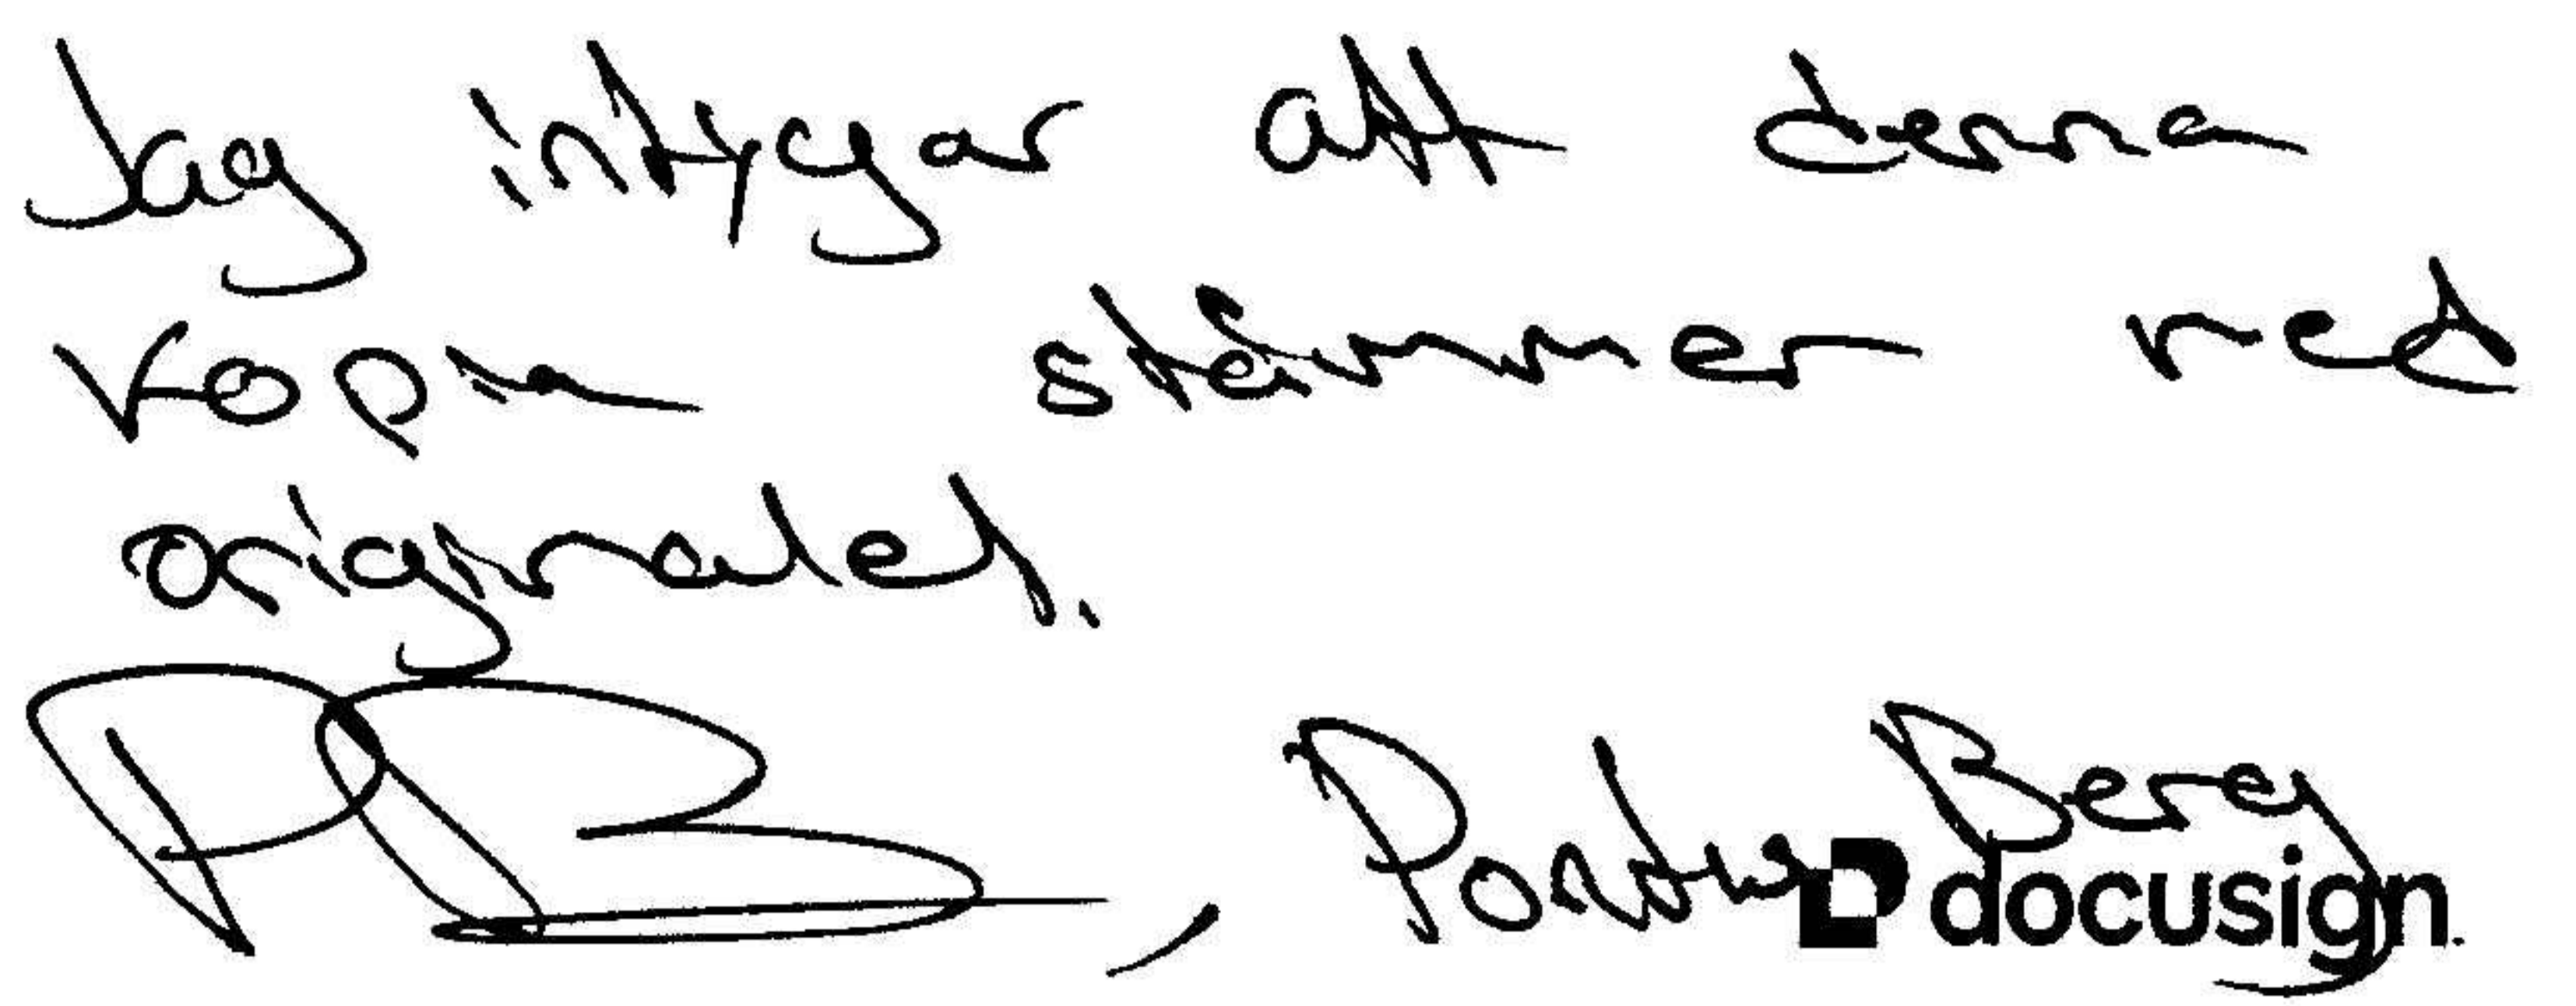 Jag intygar att denna
kopia stämmer med
originalet.
PB, Pontus Berg
docusign.